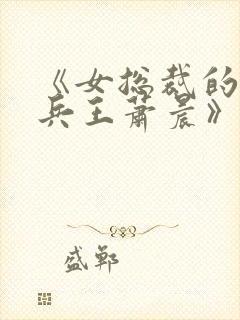 《女总裁的
兵王萧晨》
盛郸